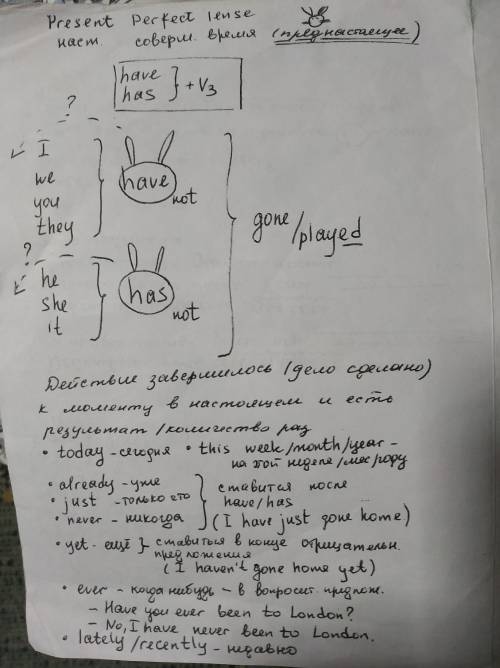 Present Perfect Tense
наст. соверм. время (преднастоящее)
have
has } + V3
?
I
we
you
they
have
not
?
he
she
it
has
not
gone/played
Действие завершилось (дело сделано)
к моменту в настоящем и есть
результат/количество раз
• today - сегодня • this week/month/year -
на этой неделе/мес/году
• already - уже
• just - только что
• never - никогда
ставится после
have/has
(I have just gone home)
• yet - ещё } - ставиться в конце отрицательн.
предложения
(I haven't gone home yet)
• ever - когда нибудь - в вопросит. предлож.
- Have you ever been to London?
- No, I have never been to London.
• lately/recently - недавно